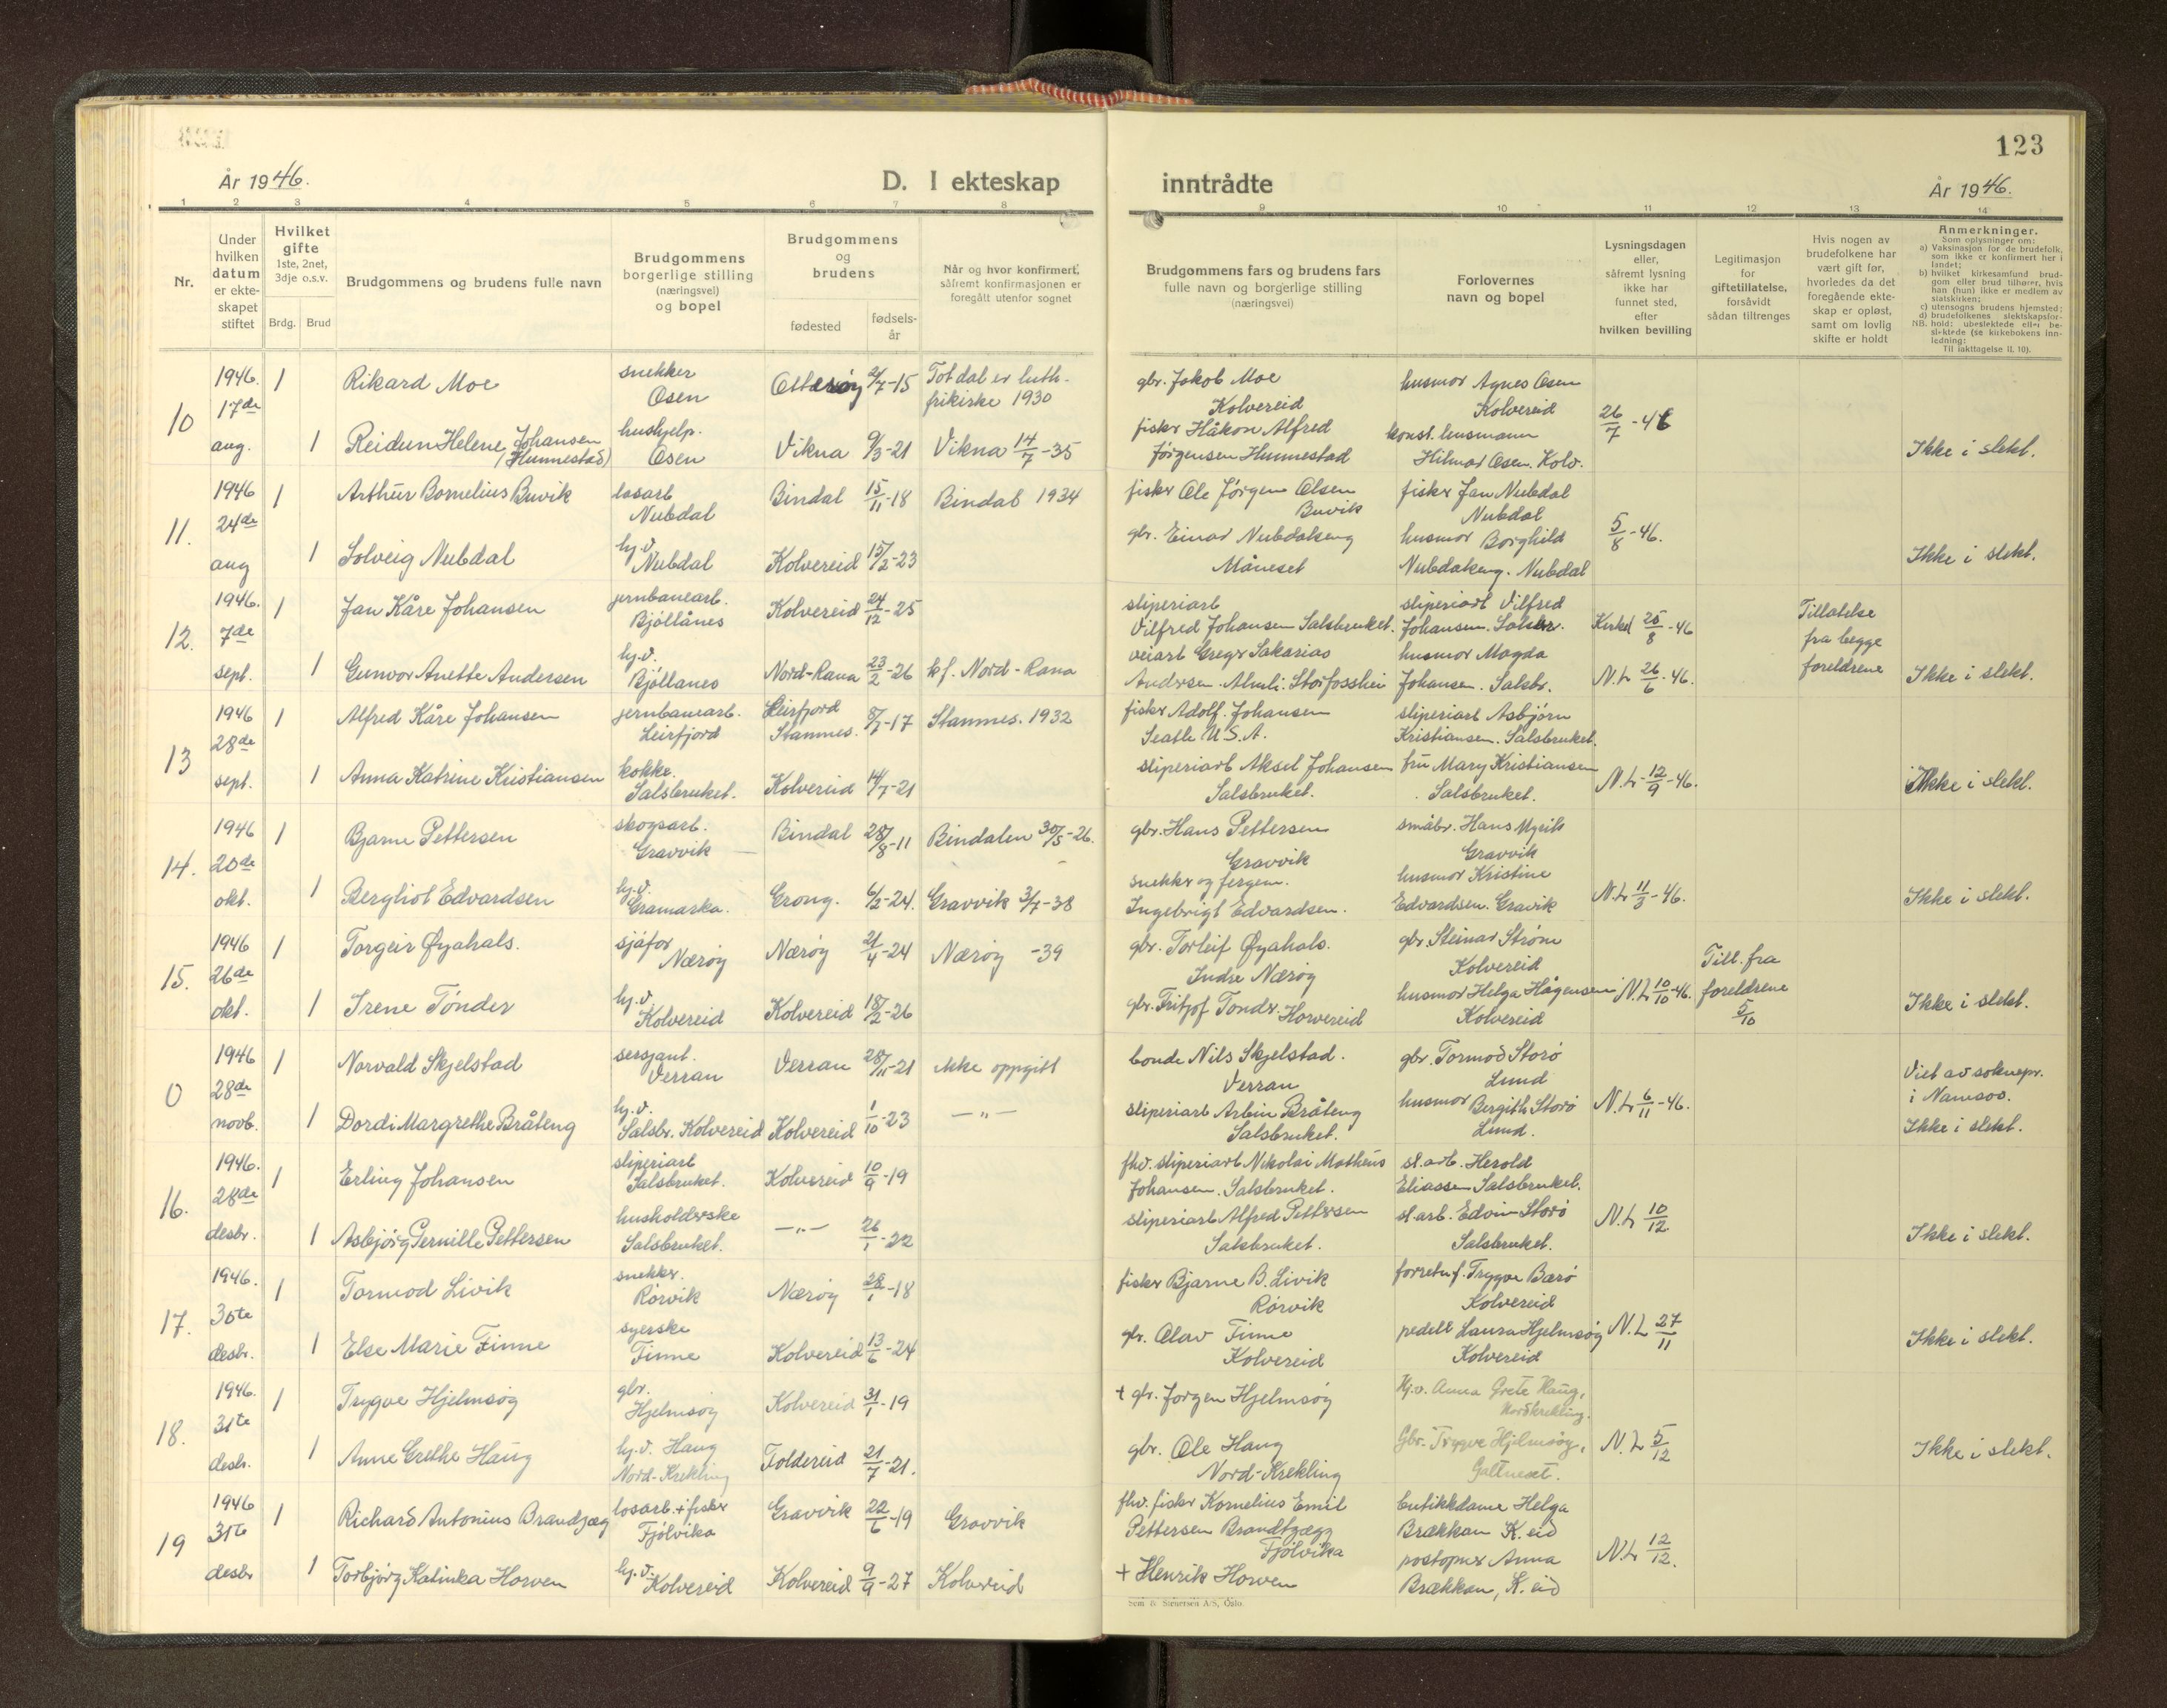 123
År 1946.
D. I ekteskap inntrådte
År 1946.
1 2 3 4 5 6 7 8 9 10 11 12 13 14
Nr.
Under hvilken datum er ekteskapet stiftet
Hvilket gifte 1ste, 2net, 3dje o.s.v.
Brdg. Brud
Brudgommens og brudens fulle navn
Brudgommens borgerlige stilling (næringsvei) og bopel
Brudgommens og brudens
fødested
fødsels-år
Når og hvor konfirmert, såfremt konfirmasjonen er foregått utenfor sognet
Brudgommens fars og brudens fars fulle navn og borgerlige stilling (næringsvei)
Forlovernes navn og bopel
Lysningsdagen eller, såfremt lysning ikke har funnet sted, efter hvilken bevilling
Legitimasjon for giftetillatelse, forsåvidt sådan tiltrenges
Hvis nogen av brudefolkene har vært gift før, hvorledes da det foregående ekteskap er opløst, samt om lovlig skifte er holdt
Anmerkninger.
Som oplysninger om:
a) Vaksinasjon for de brudefolk, som ikke er konfirmert her i landet;
b) hvilket kirkesamfund brudgom eller brud tilhører, hvis han (hun) ikke er medlem av statskirken;
c) utensogns brudens hjemsted;
d) brudefolkenes slektskapsforhold: ubeslektede eller beslektede (se kirkebokens innledning:
NB. Til iakttagelse II. 10).
10 1946. 17de aug.
1 Rikard Moe snekker Osen Otterøy 2/7-15 Tot dal ev luth. frikirke 1930 gbr. Jakob Moe Kolvereid husmor Agnes Osen Kolvereid 26/7-46
1 Reidun Helene Johansen (Hunnestad) hushjelp. Osen Vikna 9/3-21 Vikna 14/7-35 fisker Håkon Alfred Jørgensen Hunnestad konst. lensmann Hilmar Osen. Kolv. Ikke i slekt.
11. 1946 24de aug
1 Arthur Bornelius Buvik løsarb Nubdal Bindal 15/11-18 Bindal 1934 fisker Ole Jørgen Olsen Buvik fisker Jan Nubdal Nubdal 5/8-46.
1 Solveig Nubdal hj.d. Nubdal Kolvereid 15/2-23 gbr. Einar Nubdalseng Måneset husmor Borghild Nubdaleng. Nubdal Ikke i slekt.
12. 1946. 7de sept.
1 Jan Kåre Johansen jernbanearb. Bjøllånes Kolvereid 24/12-25 sliperiarb Vilfred Johansen Salsbruket. sliperiarb Vilfred Johansen. Salsbr. Kirkel 25/8-46 Tillatelse fra begge foreldrene
1 Gunvor Anette Andersen hj.d. Bjøllånes Nord-Rana 23/2-26 kf. Nord-Rana veiarb Greger Sakarias Andersen. Almli. Storfosshei husmor Magda Johansen. Salsbr. N.L 26/6-46. Ikke i slekt.
13 1946 28de sept.
1 Alfred Kåre Johansen jernbanearb. Leirfjord Leirfjord Stamnes. 8/7-17 Stamnes. 1932 fisker Adolf. Johansen Seatle U.S.A. sliperiarb Asbjørn Kristiansen. Salsbruket.
1 Anna Katrine Kristiansen kokke. Salsbruket. Kolvereid 14/7-21 sliperiarb Aksel Johansen Salsbruket. fru Mary Kristiansen Salsbruket. N.L-12/9-46. Ikke i slekt.
14. 1946 20de okt.
1 Bjarne Pettersen skogsarb. Gravvik Bindal 28/8-11 Bindalen 30/5-26. gbr. Hans Pettersen Gravvik småbr. Hans Myrik Gravvik
1 Bergliot Edvardsen hj.d. Gramarka. Grong. 6/2-24. Gravvik 3/7-38 snekker og fergem. Ingebrigt Edvardsen. husmor Kristine Edvardsen. Gravik N.L 11/3-46. Ikke i slekt.
15. 1946 26de okt.
1 Torgeir Øyahals. sjåfør Nærøy Nærøy 21/4-24 Nærøy -39 gbr. Torleif Øyahals. Indre Nærøy gbr. Steinar Strøm Kolvereid
1 Irene Tønder hj.d. Kolvereid Kolvereid 18/2-26 gbr. Fritjof Tønder. Horvereid husmor Helga Hågensen Kolvereid N.L 10/10-46. Till. fra foreldrene 5/10 Ikke i slekt.
0 1946 28de novb.
1 Norvald Skjelstad sersjant. Verran Verran 28/11-21 ikke oppgitt bonde Nils Skjelstad. Verran gbr. Tormod Storø Lund Viet av soknepr. i Namsos.
1 Dordi Margrethe Bråteng hj.d. Salsbr. Kolvereid Kolvereid 1/10-23 —"— sliperiarb Arbin Bråteng Salsbruket. husmor Bergith Storø Lund. N.L 6/11-46. Ikke i slekt.
16. 1946. 28de desbr.
1 Erling Johansen sliperiarb Salsbruket. Kolvereid 10/9-19 fhv. sliperiarb Nikolai Matheus Johansen. Salsbruket. sl.arb. Herold Eliassen Salsbruket.
1 Asbjørg Pernille Pettersen husholderske Salsbruket. —"— 26/1-22 sliperiarb Alfred Pettersen Salsbruket. sl.arb. Edvin Storø Salsbruket. N.L 10/12 Ikke i slekt.
17. 1946. 30te desbr.
1 Tormod Livik snekker. Rørvik Nærøy 28/1-18 fisker Bjarne B. Livik Rørvik forretn.f. Trygve Barø Kolvereid
1 Else Marie Finne syerske Finne Kolvereid 13/6-24 gbr. Olav Finne Kolvereid pedell Laura Hjelmsøy Kolvereid N.L 27/11 Ikke i slekt.
18. 1946. 31te desb.
1 Trygve Hjelmsøy gbr. Hjelmsøy Kolvereid 31/1-19 + gbr. Jørgen Hjelmsøy Hj.v. Anna Grete Haug, Nordkrekling.
1 Anne Grethe Haug hj.d. Haug Nord-Krekling Foldereid 21/7-21. gbr. Ole Haug Nord-Krekling Gbr. Trygve Hjelmsøy, N.L 5/12 Ikke i slekt.
19 1946 31te desbr
1 Richard Antonius Brandzæg løsarb. + fisker Fjølvika Gravvik 22/6-19 Gravvik fhv. fisker Kornelius Emil Pettersen Brandtzægg Fjølvika butikkdame Helga Brækkan K.eid
1 Torbjørg Katinka Horven hj.d. Kolvereid Kolvereid 9/9-27 Kolvereid + Henrik Horven postopner Anna Brækkan, K.eid N.L 12/12.
Sem & Stenersen A/S, Oslo.